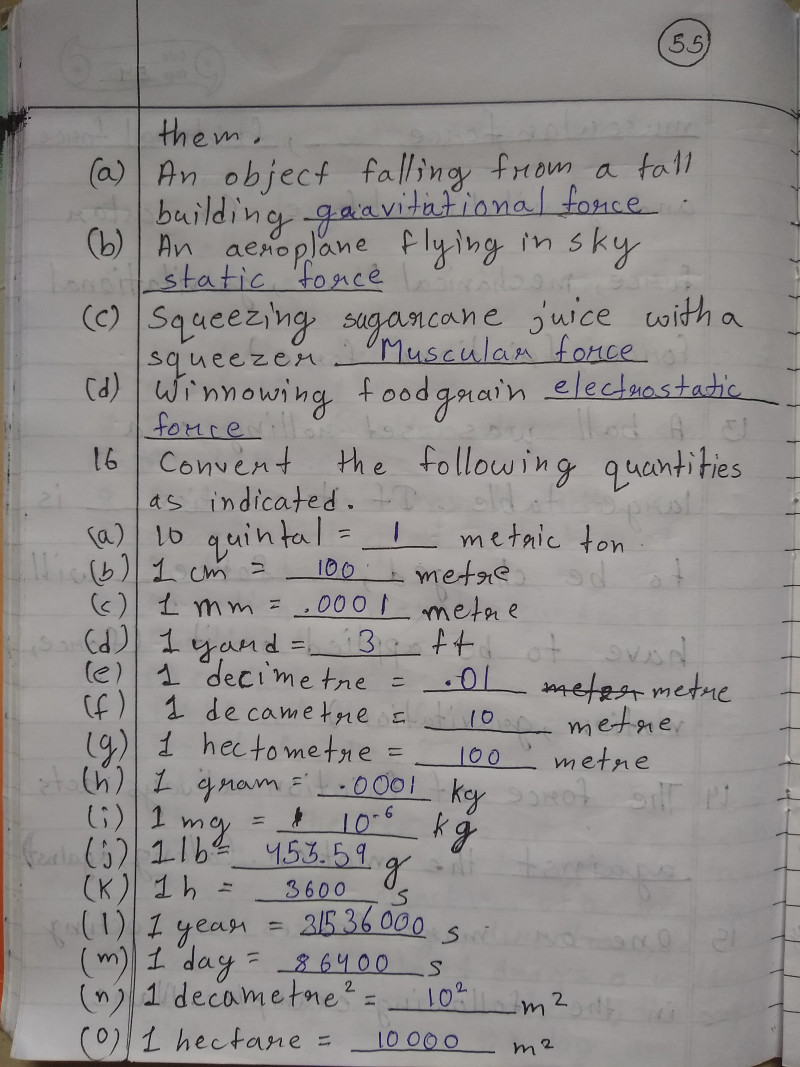 55
them.
(a) An object falling from a tall
building gravitational force.
(b) An aeroplane flying in sky
static force
(c) Squeezing sugarcane juice with a
squeezer. Muscular force
(d) Winnowing foodgrain electrostatic
force
16 Convert the following quantities
as indicated.
(a) 10 quintal = 1 metric ton
(b) 1 cm = 100 metre
(c) 1 mm = .0001 metre
(d) 1 yard = 3 ft
(e) 1 decimetre = .01 metre
(f) 1 decametre = 10 metre
(g) 1 hectometre = 100 metre
(h) 1 gram = .0001 kg
(i) 1 mg = 10⁻⁶ kg
(j) 1 lb = 453.59 g
(k) 1 h = 3600 s
(l) 1 year = 31536000 s
(m) 1 day = 86400 s
(n) 1 decametre² = 10² m²
(o) 1 hectare = 10000 m²